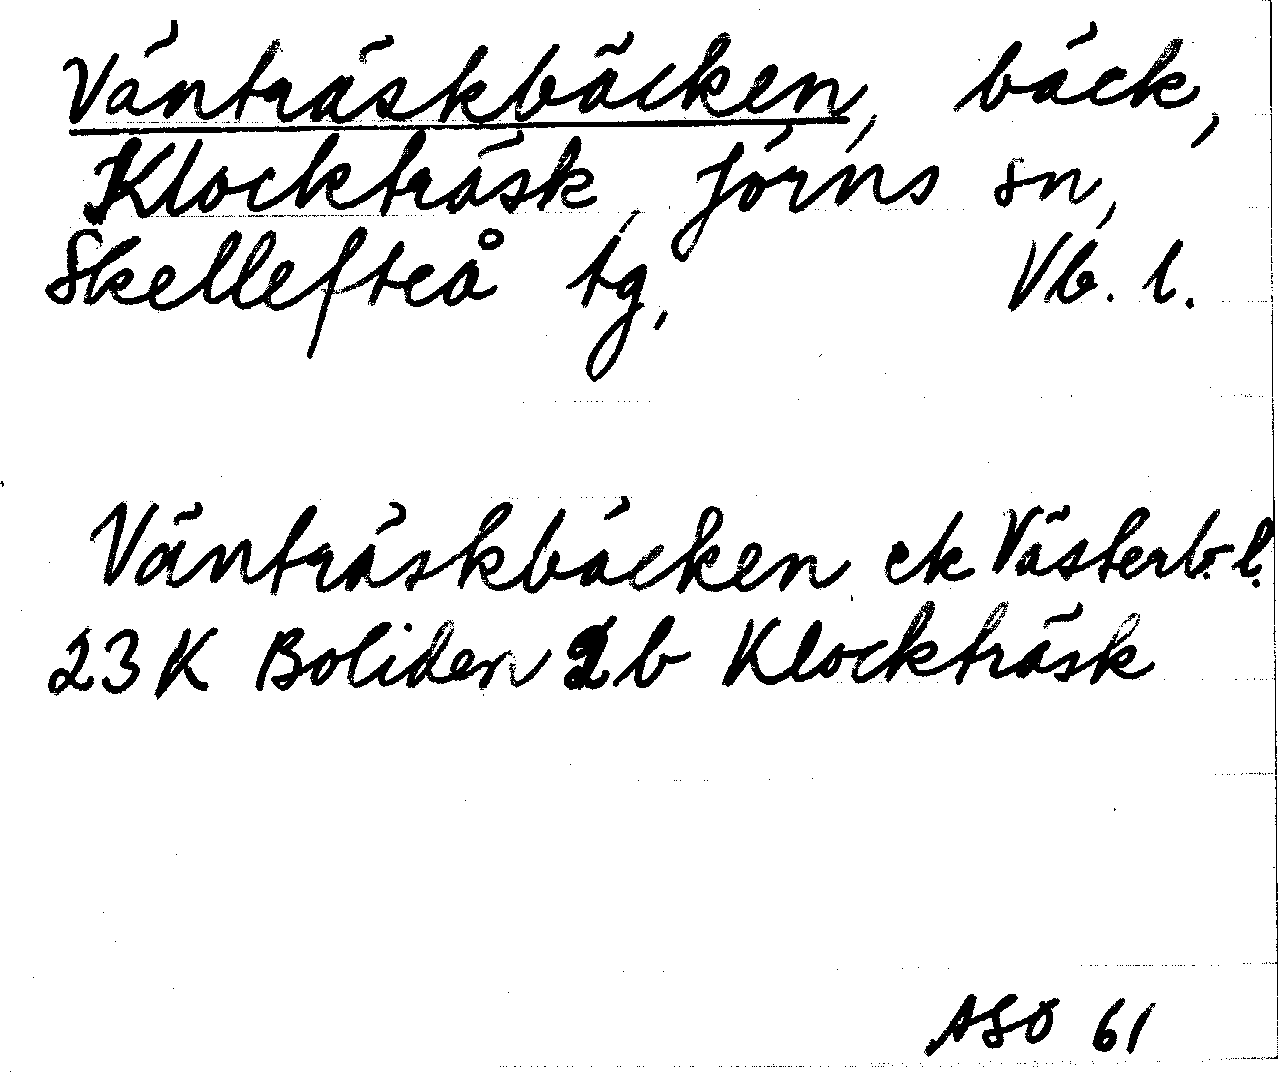 Vänträskbäcken, bäck,
Klockträsk, Jörns sn,
Skellefteå tg, Vb. l.
Vänträskbäcken ek Västerb. l.
23 K Boliden 2b Klockträsk
ASÖ 61